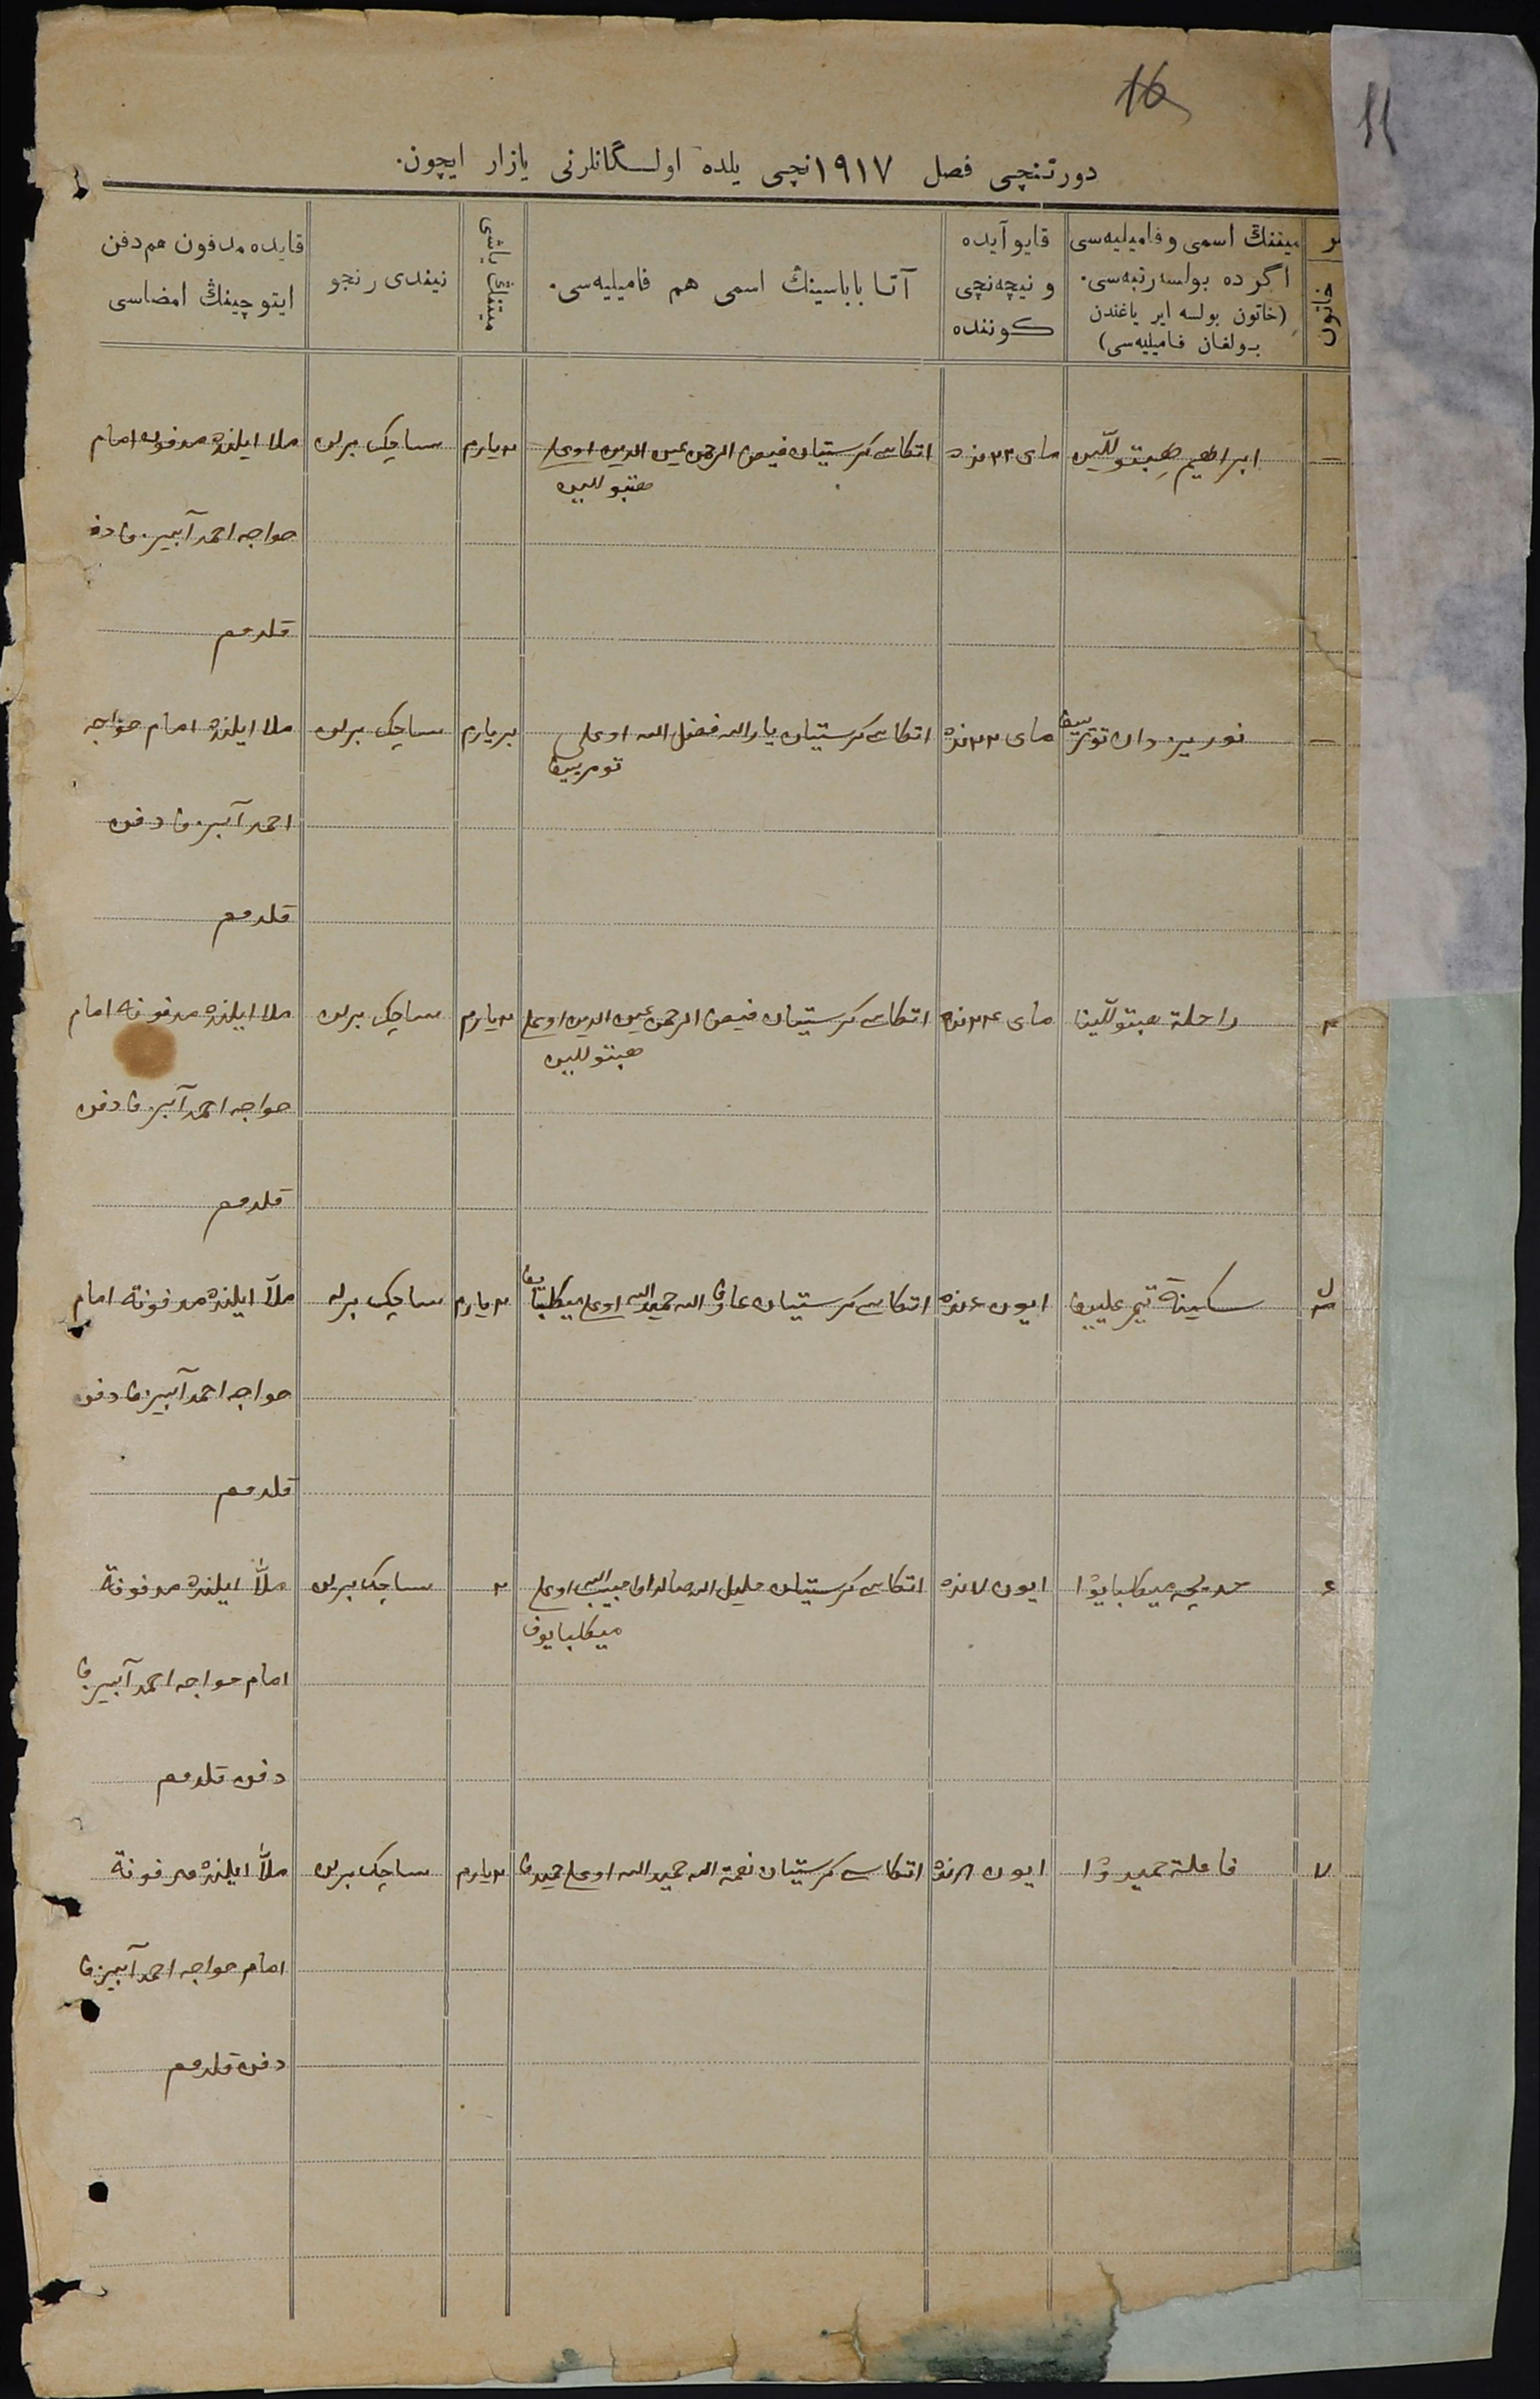 16
11
دورتنچی فصل ۱۹۱۷نچی یلده اولسگانلرنی یازار ایچون.
خاتون
میتنڭ اسمی و فامیلیه‌سی
اگر ده بولسه رتبه‌سی.
(خاتون بولسه ایر یاغندن
بولغان فامیلیه‌سی)
قایو آیده
و نیچه‌نچی
کوننده
آتا باباسینڭ اسمی هم فامیلیه‌سی.
میتنڭ یاشی
نیندی رنجو
قایده مدفون هم دفن
ایتوچینڭ امضاسی
ابراهیم هبتوللین
مای ۲۳نده
اتکاسی کرستیان فیض الرحمن عین الدین اوغلی
هبتوللین
۲ یارم
ساچک برلن
ملا ایلنده مدفون امام
خواجه احمد آبیزوف دفن
قلدم
مای ۲۳نده
اتکاسی کرستیان یارالله فضل الله اوغلی
بر یارم
ساچک برلن
ملا ایلنده امام خواجه
احمد آبیزوف دفن
قلدم
۲
راحلة هبتوللینا
مای ۲۴نده
اتکاسی کرستیان فیض الرحمن عین الدین اوغلی
هبتوللین
۲ یارم
ساچک برلن
ملا ایلنده مدفونه امام
خواجه احمد آبیزوف دفن
قلدم
سکینة
ایون ۶نده
اتکاسی کرستیان عارف الله حمیدالله اوغلی
۲ یارم
ساچک برله
ملا ایلنده مدفونة امام
خواجه احمد آبیزوف دفن
قلدم
۶
خدیجه میکلبایوا
ایون ۷نده
اتکاسی کرستیان خلیل الله حبیب الله اوغلی
میکلبایوف
۲
ساچک برلن
ملا ایلنده مدفونة
امام خواجه احمد آبیزوف
دفن قلدم
۷
حمیدوا
ایون ۸نده
اتکاسی کرستیان نعمة الله حمیدالله اوغلی حمیدوف
۲ یارم
ساچک برلن
ملا ایلنده مدفونة
امام خواجه احمد آبیزوف
دفن قلدم